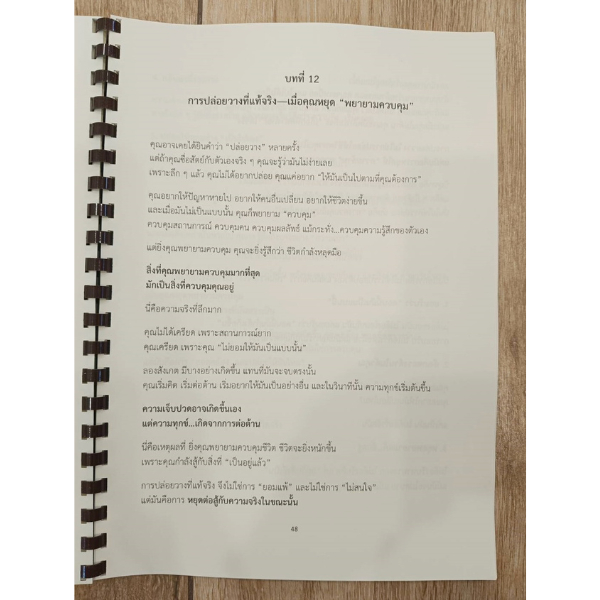 บทที่ 12
การปล่อยวางที่แท้จริง—เมื่อคุณหยุด "พยายามควบคุม"
คุณอาจเคยได้ยินคำว่า "ปล่อยวาง" หลายครั้ง
แต่ถ้าคุณซื่อสัตย์กับตัวเองจริง ๆ คุณจะรู้ว่ามันไม่ง่ายเลย
เพราะลึก ๆ แล้ว คุณไม่ได้อยากปล่อย คุณแค่อยาก "ให้มันเป็นไปตามที่คุณต้องการ"
คุณอยากให้ปัญหาหายไป อยากให้คนอื่นเปลี่ยน อยากให้ชีวิตง่ายขึ้น
และเมื่อมันไม่เป็นแบบนั้น คุณก็พยายาม "ควบคุม"
ควบคุมสถานการณ์ ควบคุมคน ควบคุมผลลัพธ์ แม้กระทั่ง...ควบคุมความรู้สึกของตัวเอง
แต่ยิ่งคุณพยายามควบคุม คุณจะยิ่งรู้สึกว่า ชีวิตกำลังหลุดมือ
สิ่งที่คุณพยายามควบคุมมากที่สุด
มักเป็นสิ่งที่ควบคุมคุณอยู่
นี่คือความจริงที่ลึกมาก
คุณไม่ได้เครียด เพราะสถานการณ์ยาก
คุณเครียด เพราะคุณ "ไม่ยอมให้มันเป็นแบบนั้น"
ลองสังเกต มีบางอย่างเกิดขึ้น แทนที่มันจะจบตรงนั้น
คุณเริ่มคิด เริ่มต่อต้าน เริ่มอยากให้มันเป็นอย่างอื่น และในวินาทีนั้น ความทุกข์เริ่มต้นขึ้น
ความเจ็บปวดอาจเกิดขึ้นเอง
แต่ความทุกข์...เกิดจากการต่อต้าน
นี่คือเหตุผลที่ ยิ่งคุณพยายามควบคุมชีวิต ชีวิตจะยิ่งหนักขึ้น
เพราะคุณกำลังสู้กับสิ่งที่ "เป็นอยู่แล้ว"
การปล่อยวางที่แท้จริง จึงไม่ใช่การ "ยอมแพ้" และไม่ใช่การ "ไม่สนใจ"
แต่มันคือการ หยุดต่อสู้กับความจริงในขณะนั้น
48